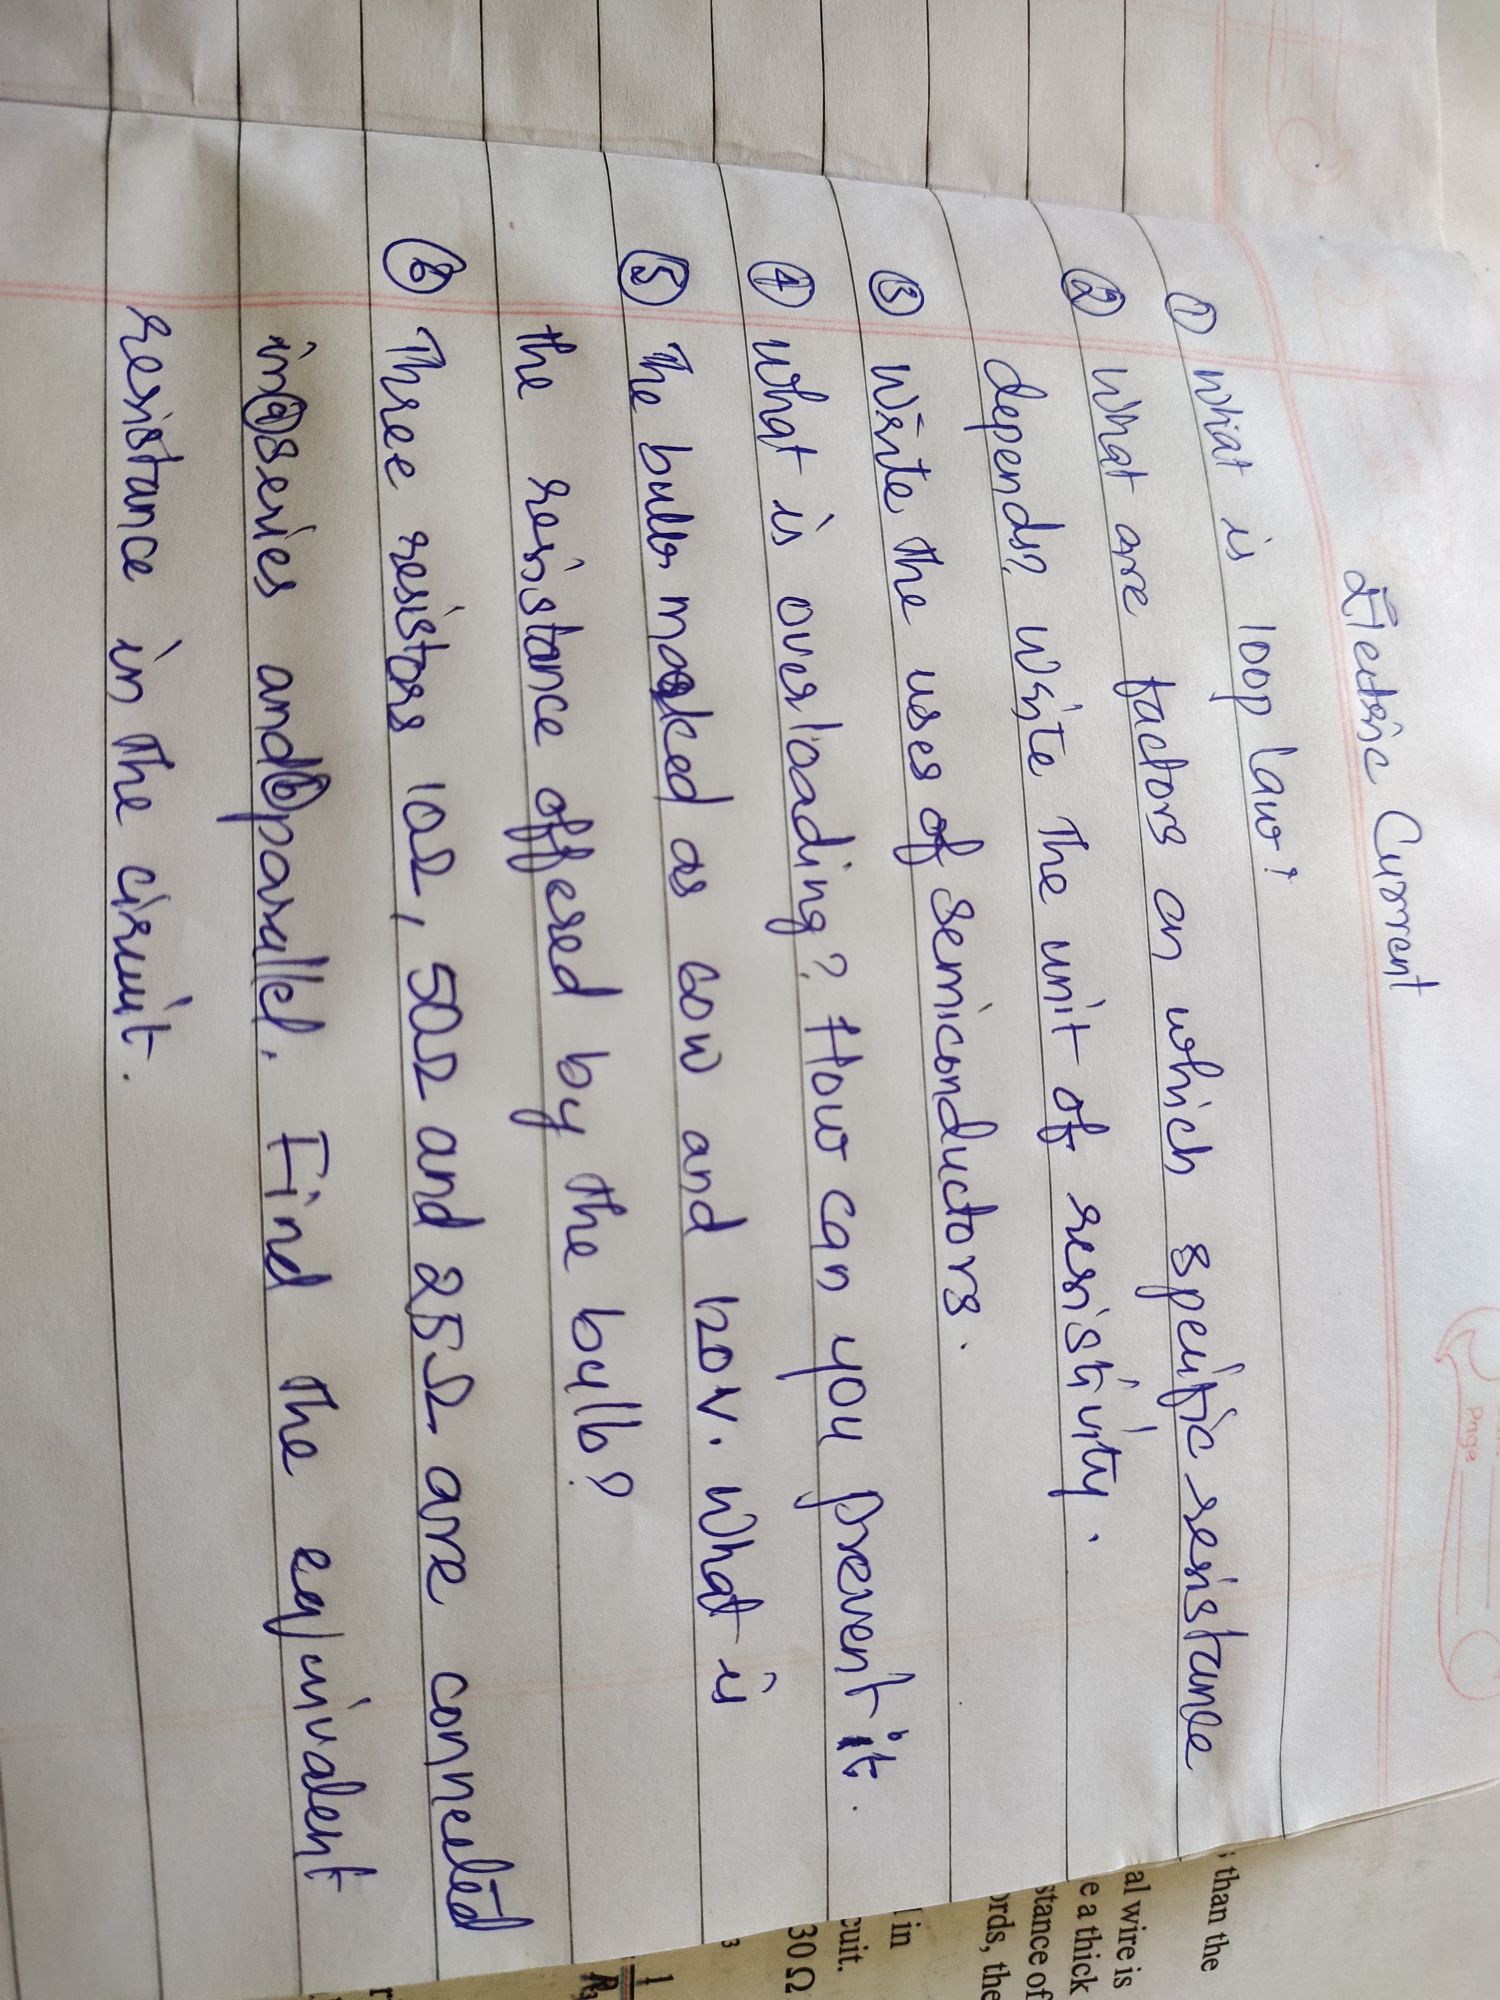 Electric Current
① What is loop law?
② What are factors on which specific resistance
depends? write the unit of resistivity.
③ Write the uses of semiconductors.
④ What is overloading? How can you prevent it.
⑤ The bulb marked as 60W and 120V. What is
the resistance offered by the bulb?
⑥ Three resistors 10Ω, 50Ω and 25Ω are connected
in ⓐ series and ⓑ parallel. Find the equivalent
resistance in the circuit.
Page
than the
al wire is
e a thick
stance of
ords, the
in
cuit.
30 Ω
3
1
R3
r